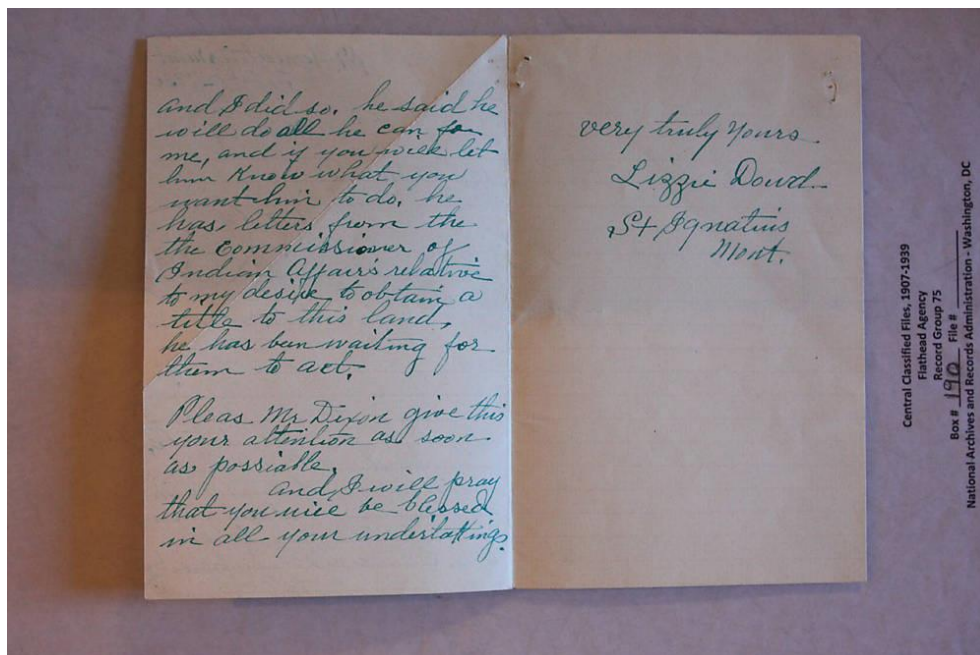 and I did so. he said he
will do all he can for
me, and if you will let
him Know what you
want him to do. he
has, letters, from the
the Commissioner of
Indian Affair's relative
to my desire to obtain a
title to this land,
he has been waiting for
them to act.
Pleas Mr Dixon give this
your attention as soon
as possiable.
and I will pray
that you will be blessed
in all your undertakings.
very truly yours
Lizzie Dowd
St Ignatius
Mont.
Central Classified Files, 1907-1939
Flathead Agency
Record Group 75
Box # 190 File #
National Archives and Records Administration - Washington, DC